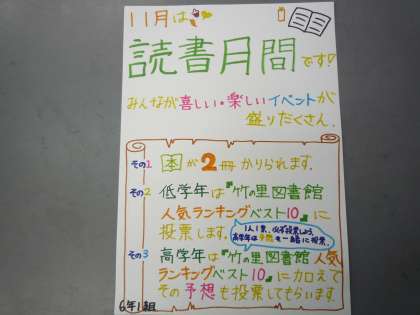 11月は
読書月間です!
みんなが喜しい・楽しいイベントが
盛りだくさん。
その1 本が2冊かりられます。
その2 低学年は『竹の里図書館
人気ランキングベスト10』に
投票します。
1人1票、必ず投票しよう。
高学年は予想も一緒に投票。
その3 高学年は『竹の里図書館人気
ランキングベスト10』に加えて
その予想も投票してもらいます。
6年1組